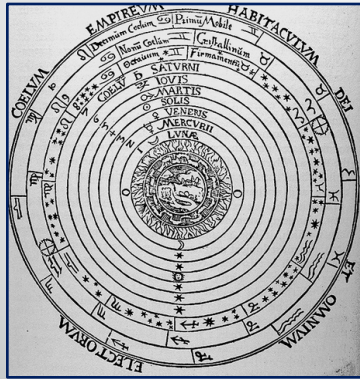 COELUM EMPIREUM HABITACULUM DEI ET OMNIUM ELECTORUM
Decimum Coelum Primũ Mobile
Nonũ Coelum Cristallinum
Octavum Firmamentũ
COELV
SATURNI
IOVIS
MARTIS
SOLIS
VENERIS
MERCURII
LUNÆ